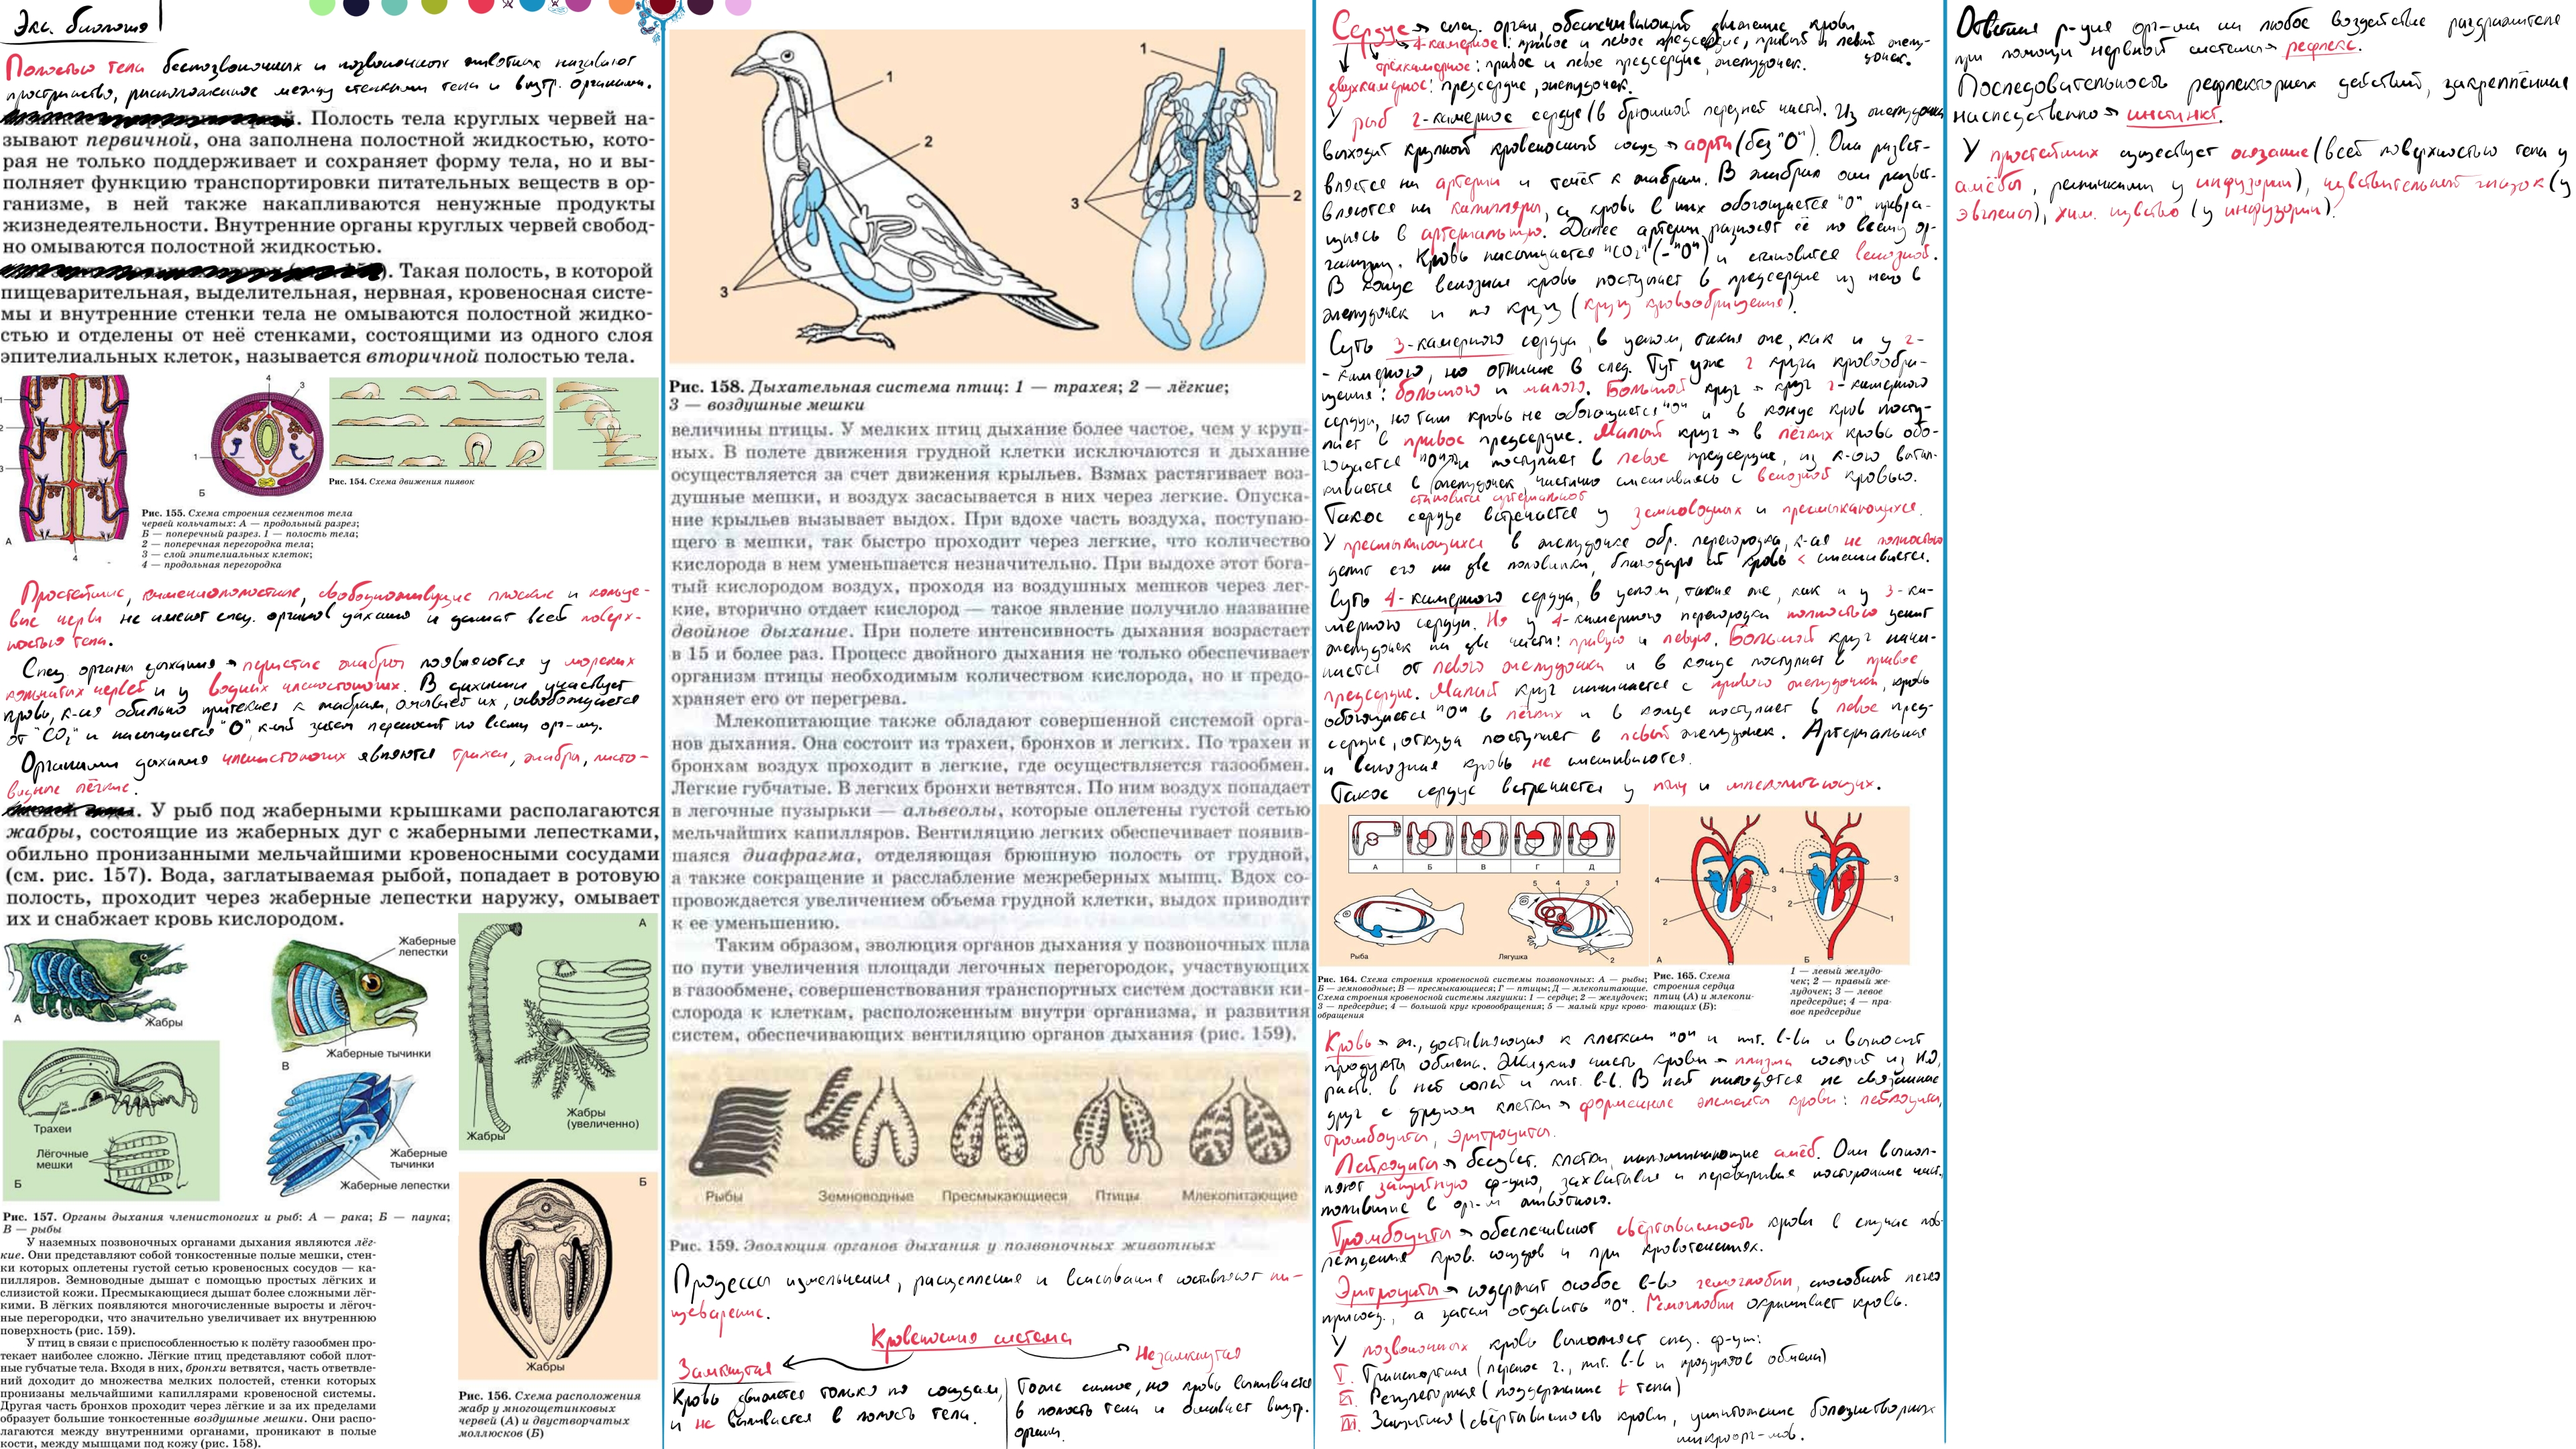 Экз. биология
Полостью тела беспозвоночных и позвоночных животных называют
пространство, расположенное между стенками тела и внутр. органами.
. Полость тела круглых червей на-
зывают первичной, она заполнена полостной жидкостью, кото-
рая не только поддерживает и сохраняет форму тела, но и вы-
полняет функцию транспортировки питательных веществ в ор-
ганизме, в ней также накапливаются ненужные продукты
жизнедеятельности. Внутренние органы круглых червей свобод-
но омываются полостной жидкостью.
). Такая полость, в которой
пищеварительная, выделительная, нервная, кровеносная систе-
мы и внутренние стенки тела не омываются полостной жидко-
стью и отделены от неё стенками, состоящими из одного слоя
эпителиальных клеток, называется вторичной полостью тела.
1
2
3
А
4
4
3
1
Б
Рис. 154. Схема движения пиявок
Рис. 155. Схема строения сегментов тела
червей кольчатых: А — продольный разрез;
Б — поперечный разрез. 1 — полость тела;
2 — поперечная перегородка тела;
3 — слой эпителиальных клеток;
4 — продольная перегородка
Простейшие, кишечнополостные, свободноживущие плоские и кольча-
тые черви не имеют спец. органов дыхания и дышат всей поверх-
ностью тела.
Спец органы дыхания → перистые жабры появляются у морских
кольчатых червей и у водных членистоногих. В дыхании участвует
кровь, к-ая обильно притекает к жабрам, омывает их, освобождается
от "CO₂" и насыщается "O", к-ый затем переносит по всему ор-му.
Органами дыхания членистоногих являются трахеи, жабры, листо-
видные лёгкие.
. У рыб под жаберными крышками располагаются
жабры, состоящие из жаберных дуг с жаберными лепестками,
обильно пронизанными мельчайшими кровеносными сосудами
(см. рис. 157). Вода, заглатываемая рыбой, попадает в ротовую
полость, проходит через жаберные лепестки наружу, омывает
их и снабжает кровь кислородом.
А
Жабры
Жаберные
лепестки
Жаберные тычинки
В
Трахеи
Лёгочные
мешки
Б
Жаберные
тычинки
Жаберные лепестки
А
Жабры
Жабры
(увеличенно)
Б
Жабры
Рис. 157. Органы дыхания членистоногих и рыб: А — рака; Б — паука;
В — рыбы
У наземных позвоночных органами дыхания являются лёг-
кие. Они представляют собой тонкостенные полые мешки, стен-
ки которых оплетены густой сетью кровеносных сосудов — ка-
пилляров. Земноводные дышат с помощью простых лёгких и
слизистой кожи. Пресмыкающиеся дышат более сложными лёг-
кими. В лёгких появляются многочисленные выросты и лёгоч-
ные перегородки, что значительно увеличивает их внутреннюю
поверхность (рис. 159).
У птиц в связи с приспособленностью к полёту газообмен про-
текает наиболее сложно. Лёгкие птиц представляют собой плот-
ные губчатые тела. Входя в них, бронхи ветвятся, часть ответвле-
ний доходит до множества мелких полостей, стенки которых
пронизаны мельчайшими капиллярами кровеносной системы.
Другая часть бронхов проходит через лёгкие и за их пределами
образует большие тонкостенные воздушные мешки. Они распо-
лагаются между внутренними органами, проникают в полые
кости, между мышцами под кожу (рис. 158).
Рис. 156. Схема расположения
жабр у многощетинковых
червей (А) и двустворчатых
моллюсков (Б)
1
2
3
1
2
3
Рис. 158. Дыхательная система птиц: 1 — трахея; 2 — лёгкие;
3 — воздушные мешки
величины птицы. У мелких птиц дыхание более частое, чем у круп-
ных. В полете движения грудной клетки исключаются и дыхание
осуществляется за счет движения крыльев. Взмах растягивает воз-
душные мешки, и воздух засасывается в них через легкие. Опуска-
ние крыльев вызывает выдох. При вдохе часть воздуха, поступаю-
щего в мешки, так быстро проходит через легкие, что количество
кислорода в нем уменьшается незначительно. При выдохе этот бога-
тый кислородом воздух, проходя из воздушных мешков через лег-
кие, вторично отдает кислород — такое явление получило название
двойное дыхание. При полете интенсивность дыхания возрастает
в 15 и более раз. Процесс двойного дыхания не только обеспечивает
организм птицы необходимым количеством кислорода, но и предо-
храняет его от перегрева.
Млекопитающие также обладают совершенной системой орга-
нов дыхания. Она состоит из трахеи, бронхов и легких. По трахеи и
бронхам воздух проходит в легкие, где осуществляется газообмен.
Легкие губчатые. В легких бронхи ветвятся. По ним воздух попадает
в легочные пузырьки — альвеолы, которые оплетены густой сетью
мельчайших капилляров. Вентиляцию легких обеспечивает появив-
шаяся диафрагма, отделяющая брюшную полость от грудной,
а также сокращение и расслабление межреберных мышц. Вдох со-
провождается увеличением объема грудной клетки, выдох приводит
к ее уменьшению.
Таким образом, эволюция органов дыхания у позвоночных шла
по пути увеличения площади легочных перегородок, участвующих
в газообмене, совершенствования транспортных систем доставки ки-
слорода к клеткам, расположенным внутри организма, и развития
систем, обеспечивающих вентиляцию органов дыхания (рис. 159).
Рыбы
Земноводные
Пресмыкающиеся
Птицы
Млекопитающие
Рис. 159. Эволюция органов дыхания у позвоночных животных
Процессы измельчения, расщепления и всасывания составляют пи-
щеварение.
Кровеносная система
Замкнутая
Незамкнутая
Кровь движется только по сосудам,
и не выливается в полость тела.
Тоже самое, но кровь выливается
в полость тела и омывает внутр.
органы.
Сердце → спец. орган, обеспечивающий движение крови
→ 4-камерное: правое и левое предсердие, правый и левый желу-
дочек.
трёхкамерное: правое и левое предсердие, желудочек.
двухкамерное: предсердие, желудочек.
У рыб 2-камерное сердце (в брюшной передней части). Из желудочка
выходит крупный кровеносный сосуд → аорта (без "O"). Она развет-
вляется на артерии и течёт к жабрам. В жабрах они развет-
вляются на капилляры, а кровь в них обогащается "O" превра-
щаясь в артериальную. Далее артерии разносят её по всему ор-
ганизму. Кровь насыщается "CO₂" (-"O") и становится венозной.
В конце венозная кровь поступает в предсердие из него в
желудочек и по кругу (круги кровообращения).
Суть 3-камерного сердца, в целом, такая же, как и у 2-
-камерного, но отличие в след. Тут уже 2 круга кровообра-
щения: большого и малого. Большой круг → круг 2-камерного
сердца, но там кровь не обогащается "O" и в конце кровь посту-
пает в правое предсердие. Малый круг → в лёгких кровь обо-
гащается "O" и поступает в левое предсердие, из к-ого вытал-
кивается в желудочек, частично смешиваясь с венозной кровью.
становится артериальной
Такое сердце встречается у земноводных и пресмыкающихся.
У пресмыкающихся в желудочке обр. перегородка, к-ая не полностью
делит его на две половинки, благодаря ей кровь < смешивается.
Суть 4-камерного сердца, в целом, такая же, как и у 3-ка-
мерного сердца. Но у 4-камерного перегородка полностью делит
желудочек на две части: правую и левую. Большой круг начи-
нается от левого желудочка и в конце поступает в правое
предсердие. Малый круг начинается с правого желудочка, кровь
обогащается "O" в лёгких и в конце поступает в левое пред-
сердие, откуда поступает в левый желудочек. Артериальная
и венозная кровь не смешиваются.
Такое сердце встречается у птиц и млекопитающих.
А
Б
В
Г
Д
Рыба
5
4
3
1
2
Лягушка
4
2
3
1
А
4
2
3
1
Б
Рис. 164. Схема строения кровеносной системы позвоночных: А — рыбы;
Б — земноводные; В — пресмыкающиеся; Г — птицы; Д — млекопитающие.
Схема строения кровеносной системы лягушки: 1 — сердце; 2 — желудочек;
3 — предсердие; 4 — большой круг кровообращения; 5 — малый круг крово-
обращения
Рис. 165. Схема
строения сердца
птиц (А) и млекопи-
тающих (Б):
1 — левый желудо-
чек; 2 — правый же-
лудочек; 3 — левое
предсердие; 4 — пра-
вое предсердие
Кровь → ж., доставляющая к клеткам "O" и пит. в-ва и выносит
продукты обмена. Жидкая часть крови → плазма состоит из H₂O,
раств. в ней солей и пит. в-в. В ней находятся не связанные
друг с другом клетки → форменные элементы крови: лейкоциты,
тромбоциты, эритроциты.
Лейкоциты → бесцвет. клетки, напоминающие амёб. Они выпол-
няют защитную ф-цию, захватывая и переваривая посторонние част.
попавшие в орг-м животного.
Тромбоциты → обеспечивают свёртываемость крови в случае пов-
реждения кров. сосудов и при кровотечениях.
Эритроциты → содержат особое в-во гемоглобин, способный легко
присоед., а затем отдавать "O". Гемоглобин окрашивает кровь.
У позвоночных кровь выполняет след. ф-ции:
I. Транспортная (перенос г., пит. в-в и продуктов обмена)
II. Регуляторная (поддержание t тела)
III. Защитная (свёртываемость крови, уничтожение болезнетворных
микроорг-мов.
Ответная р-ция орг-ма на любое воздействие раздражителя
при помощи нервной системы → рефлекс.
Последовательность рефлекторных действий, закреплённая
наследственно → инстинкт.
У простейших существует осязание (всей поверхностью тела у
амёбы, ресничками у инфузории), чувствительный глазок (у
эвглены), хим. чувство (у инфузории).